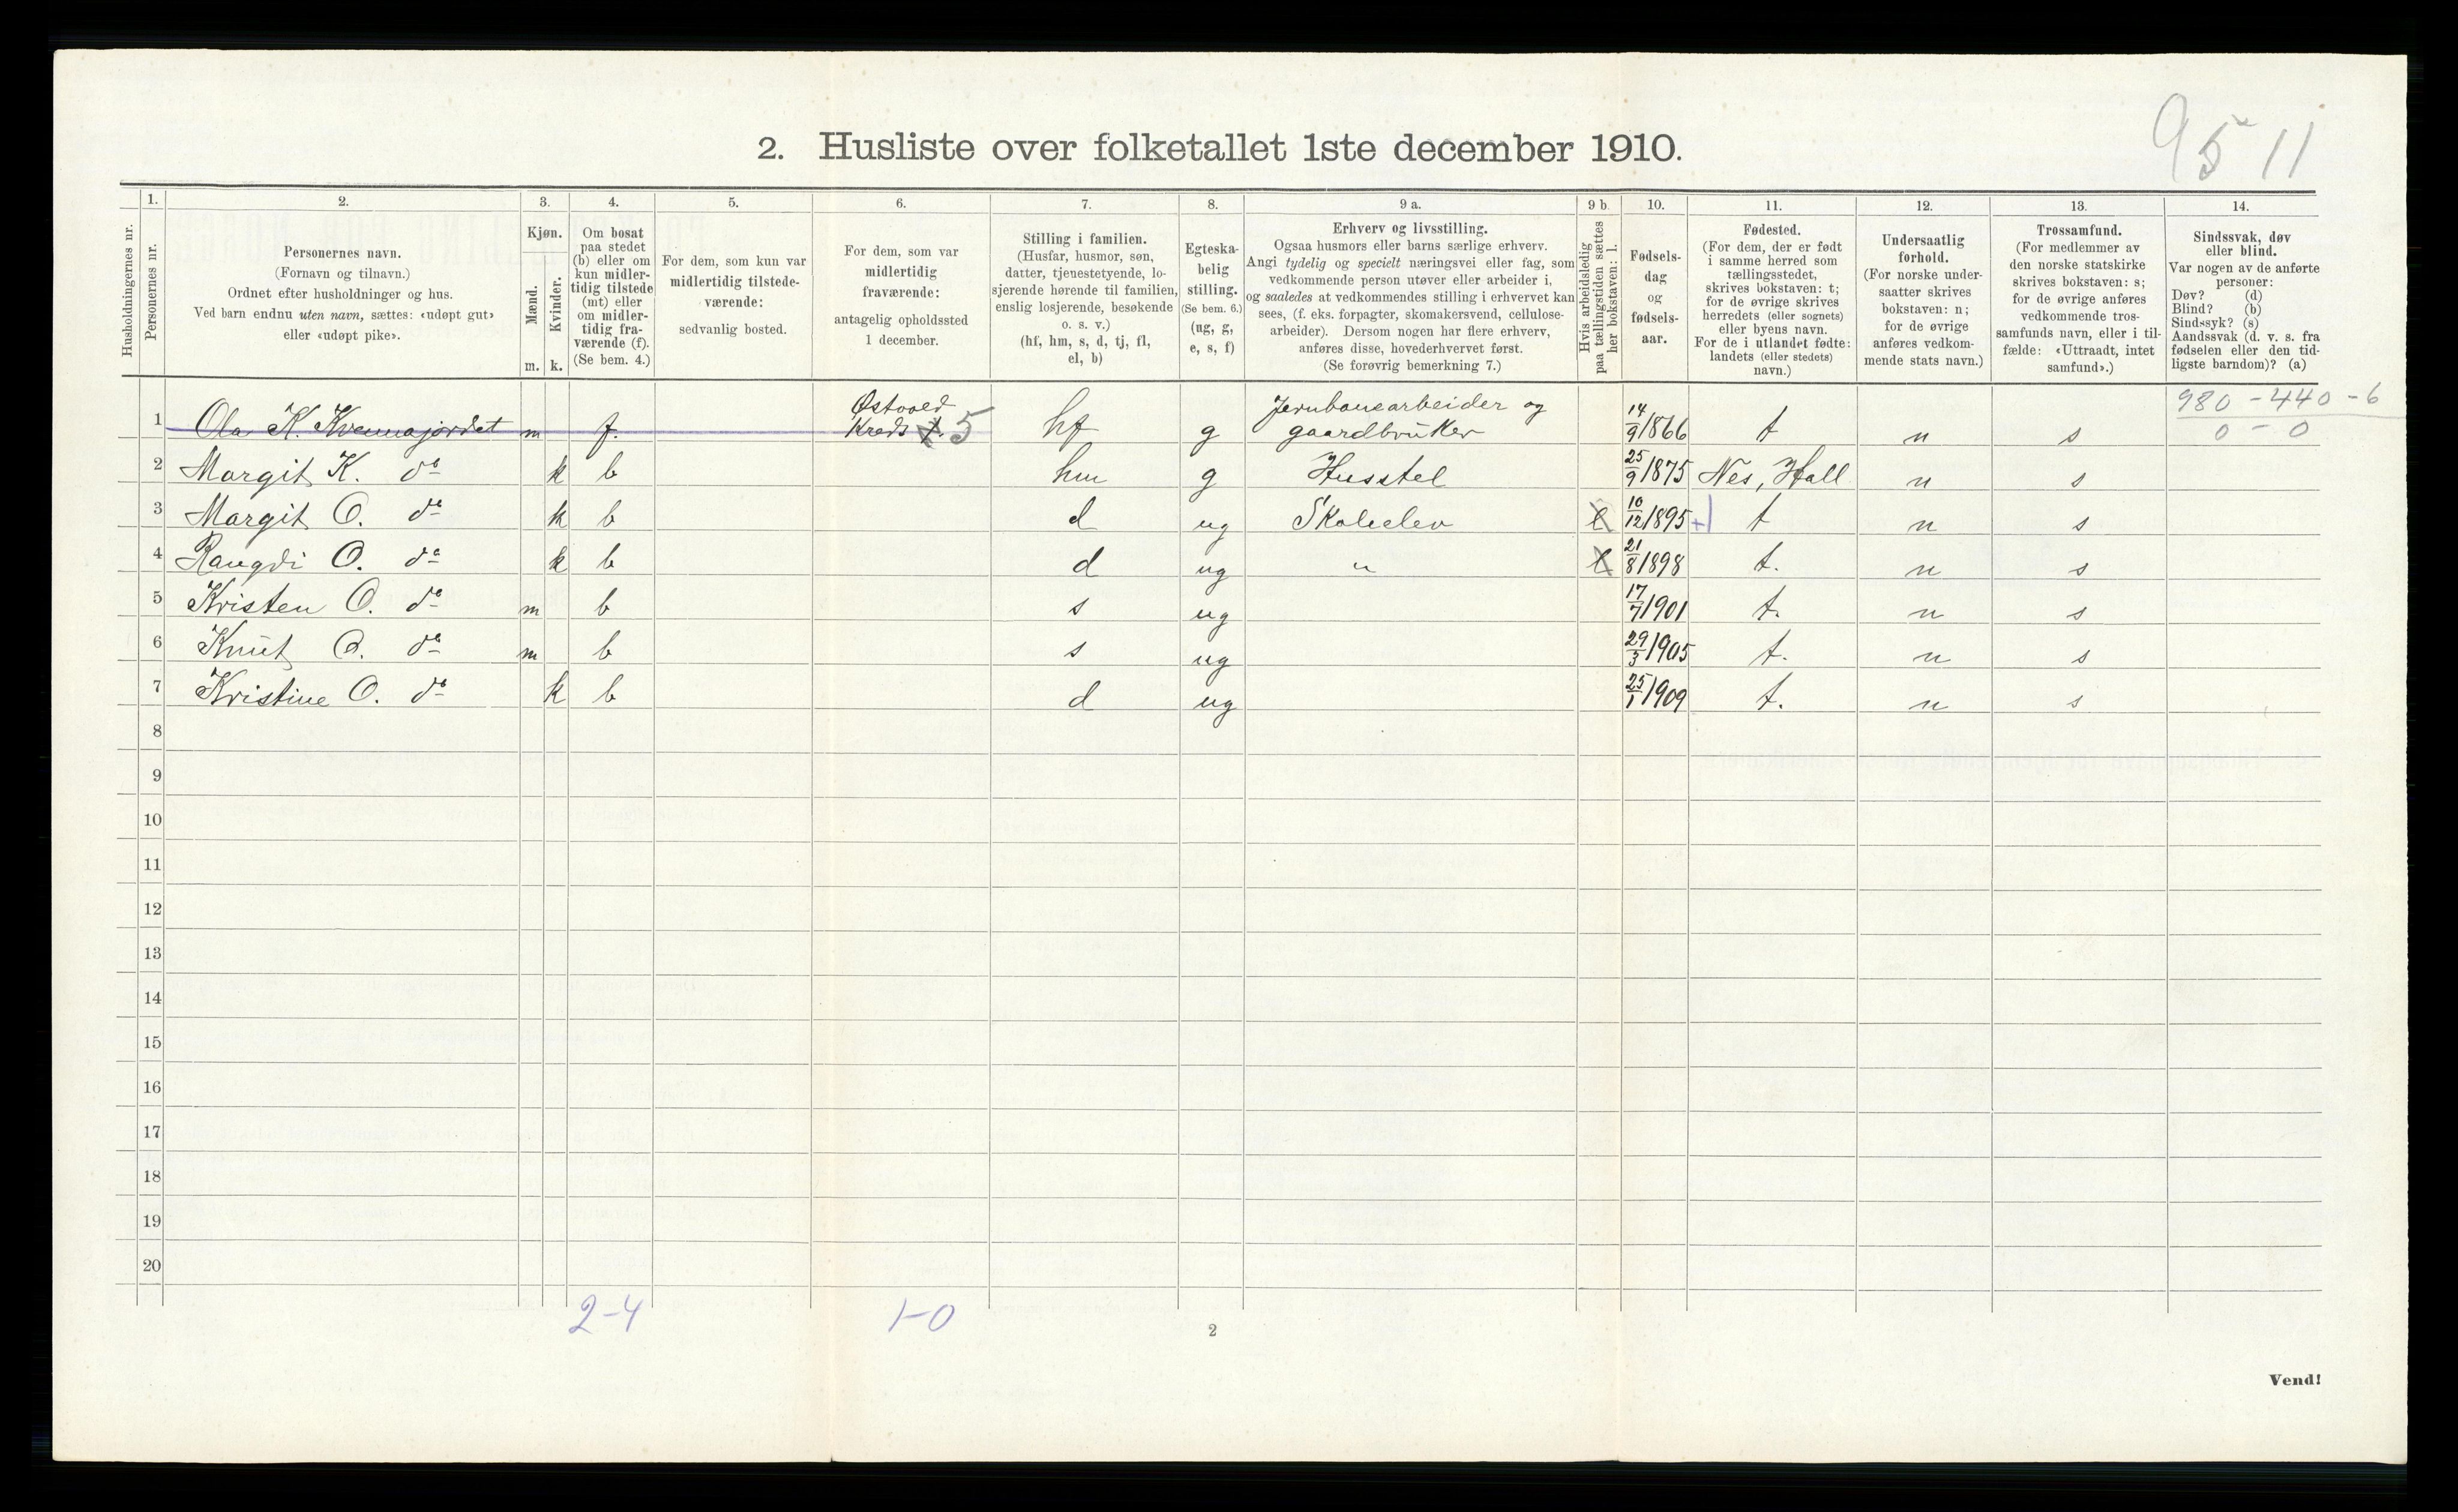 95 11
2. Husliste over folketallet 1ste december 1910.
Husholdningernes nr.
1.
Personernes nr.
2.
Personernes navn.
(Fornavn og tilnavn.)
Ordnet efter husholdninger og hus.
Ved barn endnu uten navn, sættes: «udøpt gut»
eller «udøpt pike».
3.
Kjøn.
Mænd.
Kvinder.
m. k.
4.
Om bosat
paa stedet
(b) eller om
kun midler-
tidig tilstede
(mt) eller
om midler-
tidig fra-
værende (f).
(Se bem. 4.)
5.
For dem, som kun var
midlertidig tilstede-
værende:
sedvanlig bosted.
6.
For dem, som var
midlertidig
fraværende:
antagelig opholdssted
1 december.
7.
Stilling i familien.
(Husfar, husmor, søn,
datter, tjenestetyende, lo-
sjerende hørende til familien,
enslig losjerende, besøkende
o. s. v.)
(hf, hm, s, d, tj, fl,
el, b)
8.
Egteska-
belig
stilling.
(Se bem. 6.)
(ug, g,
e, s, f)
9 a.
Erhverv og livsstilling.
Ogsaa husmors eller barns særlige erhverv.
Angi tydelig og specielt næringsvei eller fag, som
vedkommende person utøver eller arbeider i,
og saaledes at vedkommendes stilling i erhvervet kan
sees, (f. eks. forpagter, skomakersvend, cellulose-
arbeider). Dersom nogen har flere erhverv,
anføres disse, hovederhvervet først.
(Se forøvrig bemerkning 7.)
9 b.
Hvis arbeidsledig
paa tællingstiden sættes
her bokstaven: l.
10.
Fødsels-
dag
og
fødsels-
aar.
11.
Fødested.
(For dem, der er født
i samme herred som
tællingsstedet,
skrives bokstaven: t;
for de øvrige skrives
herredets (eller sognets)
eller byens navn.
For de i utlandet fødte:
landets (eller stedets)
navn.)
12.
Undersaatlig
forhold.
(For norske under-
saatter skrives
bokstaven: n;
for de øvrige
anføres vedkom-
mende stats navn.)
13.
Trossamfund.
(For medlemmer av
den norske statskirke
skrives bokstaven: s;
for de øvrige anføres
vedkommende tros-
samfunds navn, eller i til-
fælde: «Uttraadt, intet
samfund».)
14.
Sindssvak, døv
eller blind.
Var nogen av de anførte
personer:
Døv? (d)
Blind? (b)
Sindssyk? (s)
Aandssvak (d. v. s. fra
fødselen eller den tid-
ligste barndom)? (a)
980 - 440 - 6
0 - 0
1 Ola K. Kvennajordet m f. Østvold Kreds 5 hf g Jernbanearbeider og gaardbruker 14/9 1866 t n s
2 Margit K. do k b hm g Husstel 25/9 1875 Nes, Hall n s
3 Margit O. do k b d ug Skoleelev l 10/12 1895 +1 t n s
4 Rangdi O. do k b d ug " l 21/8 1898 t. n s
5 Kristen O. do m b s ug 17/7 1901 t. n s
6 Knut O. do m b s ug 29/3 1905 t. n s
7 Kristine O. do k b d ug 25/1 1909 t. n s
8
9
10
11
12
13
14
15
16
17
18
19
20
2-4 1-0
2
Vend!